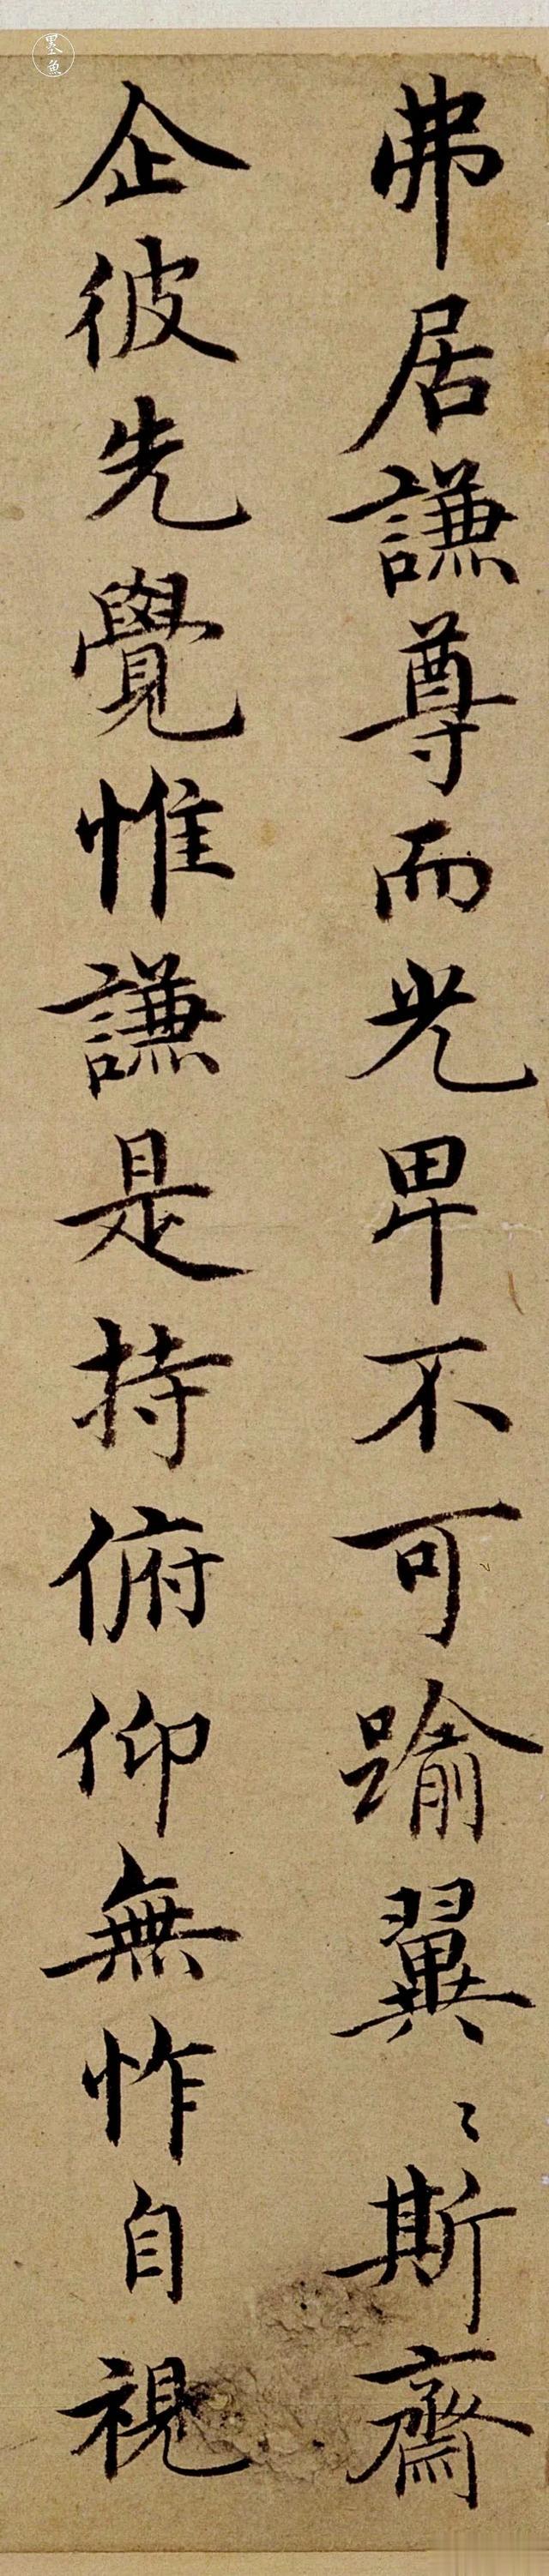 墨魚
弗居謙尊而光卑不可踰翼〻斯齋
企彼先覺惟謙是持俯仰無怍自視